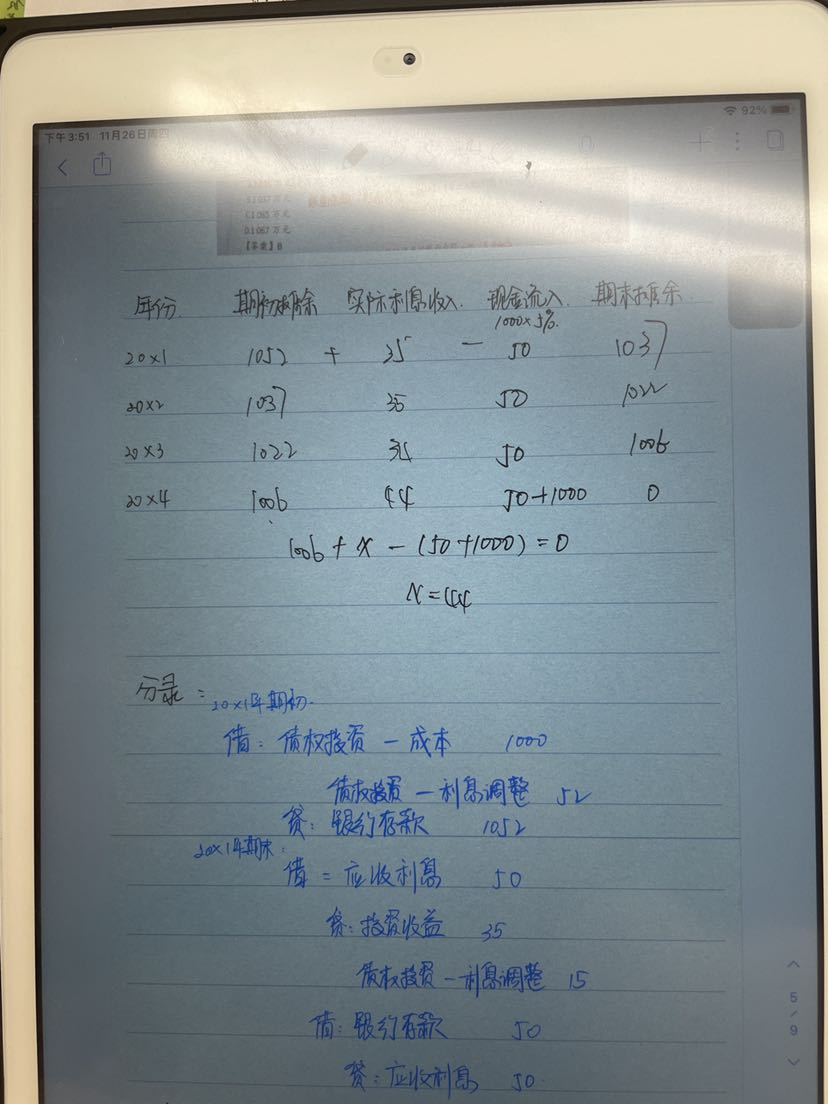 下午3:51 11月26日周四
92%
B.1057 万元
C.1065 万元
D.1067 万元
【答案】B
年份 期初摊余 实际利息收入 现金流入 期末摊余
1000×5%
20×1 1052 + 35 - 50 1037
20×2 1037 35 50 1022
20×3 1022 34 50 1006
20×4 1006 44 50+1000 0
1006 + x - (50+1000) = 0
x = 44
分录:
20×1年期初.
借: 债权投资 - 成本 1000
债权投资 - 利息调整 52
贷: 银行存款 1052
20×1年期末:
借: 应收利息 50
贷: 投资收益 35
债权投资 - 利息调整 15
借: 银行存款 50
贷: 应收利息 50
5/9